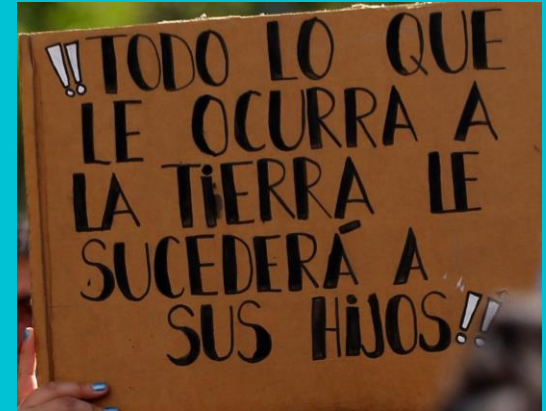 ‼TODO LO QUE
LE OCURRA A
LA TiERRA LE
SUCEDERÁ A
SUS HiJOS‼